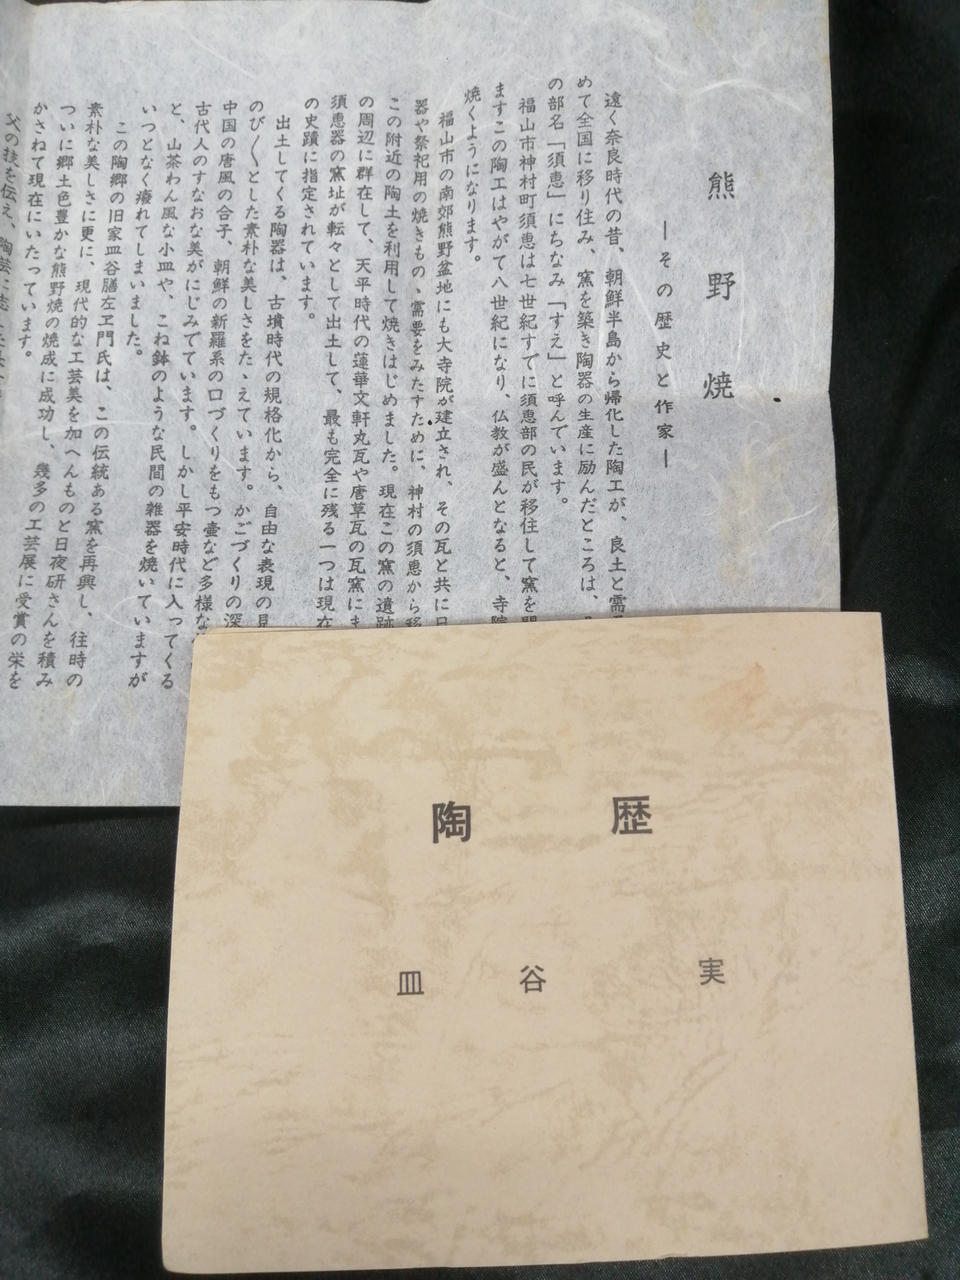 熊野焼
―その歴史と作家―
遠く奈良時代の昔、朝鮮半島から帰化した陶工が、良土と需
めて全国に移り住み、窯を築き陶器の生産に励んだところは、
の部名「須恵」にちなみ「すえ」と呼んでいます。
福山市神村町須恵は七世紀すでに須恵部の民が移住して窯を開
ますこの陶工はやがて八世紀になり、仏教が盛んとなると、寺院
焼くようになります。
福山市の南郊熊野盆地にも大寺院が建立され、その瓦と共に日
器や祭祀用の焼きもの、需要をみたすために、神村の須恵から移
この附近の陶土を利用して焼きはじめました。現在この窯の遺跡
の周辺に群在して、天平時代の蓮華文軒丸瓦や唐草瓦の瓦窯にま
須恵器の窯址が転々として出土して、最も完全に残る一つは現在
の史蹟に指定されています。
出土してくる陶器は、古墳時代の規格化から、自由な表現の見
のび〱とした素朴な美しさをたゝえています。かごづくりの深
中国の唐風の合子、朝鮮の新羅系の口づくりをもつ壷など多様な
古代人のすなおな美がにじみでています。しかし平安時代に入ってくる
と、山茶わん風な小皿や、こね鉢のような民間の雑器を焼いていますが
いつとなく癈れてしまいました。
この陶郷の旧家皿谷膳左ヱ門氏は、この伝統ある窯を再興し、往時の
素朴な美しさに更に、現代的な工芸美を加へんものと日夜研さんを積み
ついに郷土色豊かな熊野焼の焼成に成功し、幾多の工芸展に受賞の栄を
かさねて現在にいたっています。
父の技を伝え、陶芸に志
陶歴
皿谷 実